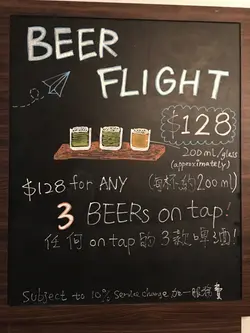 BEER
FLIGHT
$128
200ml/glass
(approximately)
$128 for ANY (每杯約200ml)
3 BEERs on tap!
任何 on tap 的 3 款啤酒!
Subject to 10% Service charge 加一服務費